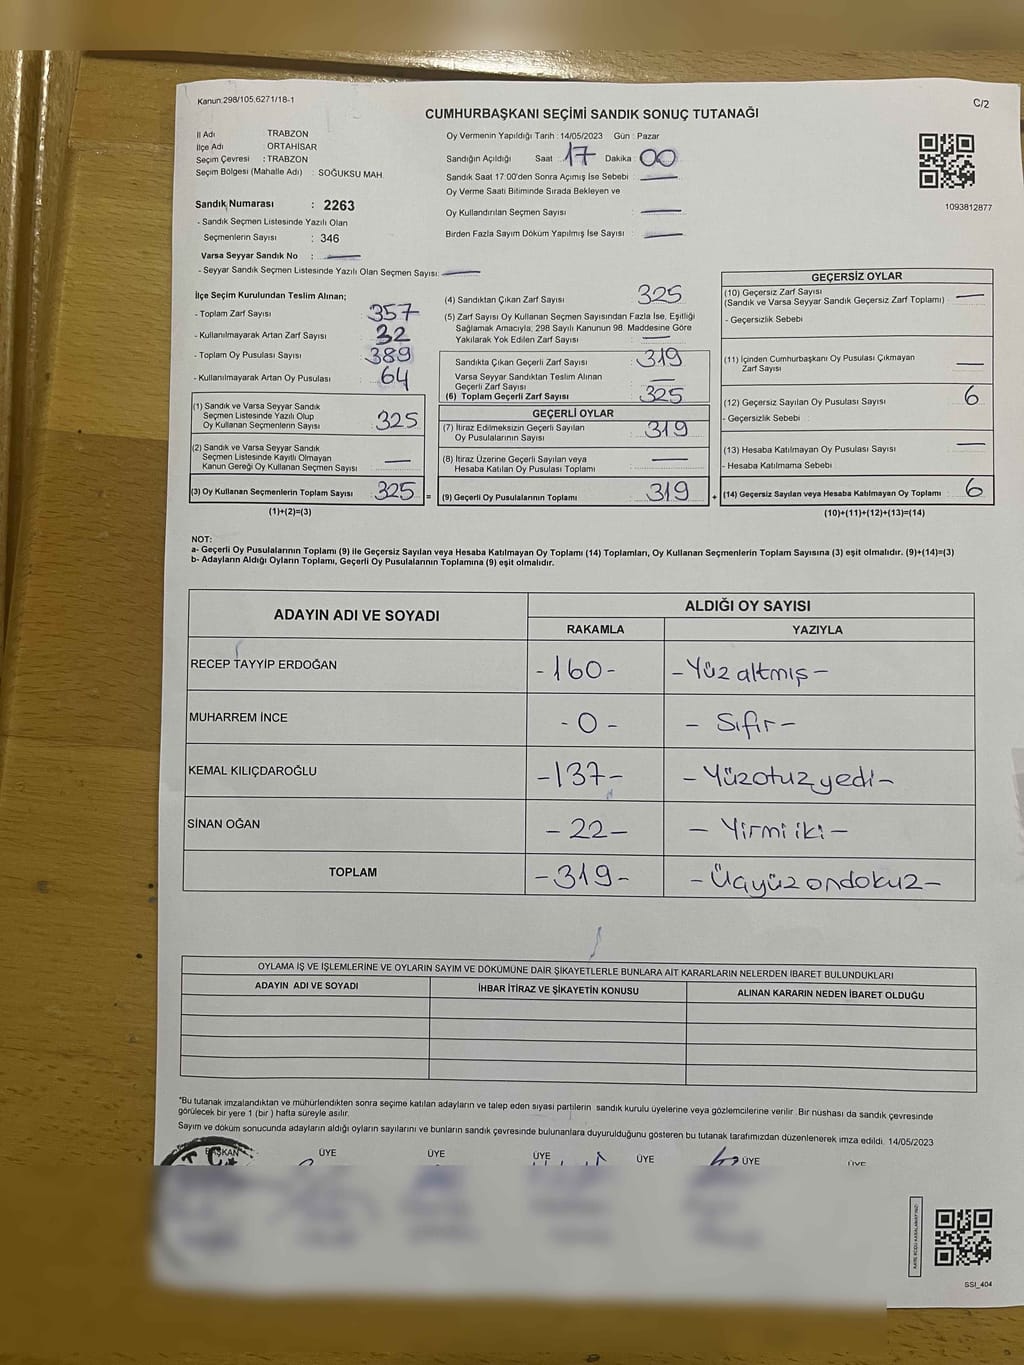 Kanun.298/105,6271/18-1
C/2
CUMHURBAŞKANI SEÇİMİ SANDIK SONUÇ TUTANAĞI
İl Adı TRABZON
İlçe Adı ORTAHİSAR
Seçim Çevresi : TRABZON
Seçim Bölgesi (Mahalle Adı) : SOĞUKSU MAH.
Sandık Numarası : 2263
- Sandık Seçmen Listesinde Yazılı Olan
Seçmenlerin Sayısı : 346
Varsa Seyyar Sandık No : —
- Seyyar Sandık Seçmen Listesinde Yazılı Olan Seçmen Sayısı: —
Oy Vermenin Yapıldığı Tarih : 14/05/2023 Gün : Pazar
Sandığın Açıldığı Saat 17 Dakika 00
Sandık Saat 17:00'den Sonra Açımış İse Sebebi : —
Oy Verme Saati Bitiminde Sırada Bekleyen ve
Oy Kullandırılan Seçmen Sayısı : —
Birden Fazla Sayım Döküm Yapılmış İse Sayısı : —
1093812877
İlçe Seçim Kurulundan Teslim Alınan;
- Toplam Zarf Sayısı : 357
- Kullanılmayarak Artan Zarf Sayısı : 32
- Toplam Oy Pusulası Sayısı : 389
- Kullanılmayarak Artan Oy Pusulası : 64
(1) Sandık ve Varsa Seyyar Sandık
Seçmen Listesinde Yazılı Olup
Oy Kullanan Seçmenlerin Sayısı : 325
(2) Sandık ve Varsa Seyyar Sandık
Seçmen Listesinde Kayıtlı Olmayan
Kanun Gereği Oy Kullanan Seçmen Sayısı : —
(3) Oy Kullanan Seçmenlerin Toplam Sayısı : 325 =
(1)+(2)=(3)
(4) Sandıktan Çıkan Zarf Sayısı : 325
(5) Zarf Sayısı Oy Kullanan Seçmen Sayısından Fazla İse, Eşitliği
Sağlamak Amacıyla; 298 Sayılı Kanunun 98. Maddesine Göre
Yakılarak Yok Edilen Zarf Sayısı : —
Sandıkta Çıkan Geçerli Zarf Sayısı : 319
Varsa Seyyar Sandıktan Teslim Alınan
Geçerli Zarf Sayısı : —
(6) Toplam Geçerli Zarf Sayısı : 325
GEÇERLİ OYLAR
(7) İtiraz Edilmeksizin Geçerli Sayılan
Oy Pusulalarının Sayısı : 319
(8) İtiraz Üzerine Geçerli Sayılan veya
Hesaba Katılan Oy Pusulası Toplamı : —
(9) Geçerli Oy Pusulalarının Toplamı : 319 +
GEÇERSİZ OYLAR
(10) Geçersiz Zarf Sayısı : —
(Sandık ve Varsa Seyyar Sandık Geçersiz Zarf Toplamı)
- Geçersizlik Sebebi :
(11) İçinden Cumhurbaşkanı Oy Pusulası Çıkmayan
Zarf Sayısı : —
(12) Geçersiz Sayılan Oy Pusulası Sayısı : 6
- Geçersizlik Sebebi :
(13) Hesaba Katılmayan Oy Pusulası Sayısı : —
- Hesaba Katılmama Sebebi :
(14) Geçersiz Sayılan veya Hesaba Katılmayan Oy Toplamı : 6
(10)+(11)+(12)+(13)=(14)
NOT:
a- Geçerli Oy Pusulalarının Toplamı (9) ile Geçersiz Sayılan veya Hesaba Katılmayan Oy Toplamı (14) Toplamları, Oy Kullanan Seçmenlerin Toplam Sayısına (3) eşit olmalıdır. (9)+(14)=(3)
b- Adayların Aldığı Oyların Toplamı, Geçerli Oy Pusulalarının Toplamına (9) eşit olmalıdır.
ADAYIN ADI VE SOYADI
ALDIĞI OY SAYISI
RAKAMLA YAZIYLA
RECEP TAYYİP ERDOĞAN -160- -Yüz altmış-
MUHARREM İNCE -0- - Sıfır-
KEMAL KILIÇDAROĞLU -137- -Yüzotuzyedi-
SİNAN OĞAN -22- - Yirmi iki-
TOPLAM -319- -Üçyüz ondokuz-
OYLAMA İŞ VE İŞLEMLERİNE VE OYLARIN SAYIM VE DÖKÜMÜNE DAİR ŞİKAYETLERLE BUNLARA AİT KARARLARIN NELERDEN İBARET BULUNDUKLARI
ADAYIN ADI VE SOYADI İHBAR İTİRAZ VE ŞİKAYETİN KONUSU ALINAN KARARIN NEDEN İBARET OLDUĞU
*Bu tutanak imzalandıktan ve mühürlendikten sonra seçime katılan adayların ve talep eden siyasi partilerin sandık kurulu üyelerine veya gözlemcilerine verilir. Bir nüshası da sandık çevresinde
görülecek bir yere 1 (bir) hafta süreyle asılır.
Sayım ve döküm sonucunda adayların aldığı oyların sayılarını ve bunların sandık çevresinde bulunanlara duyurulduğunu gösteren bu tutanak tarafımızdan düzenlenerek imza edildi. 14/05/2023
BAŞKAN ÜYE ÜYE ÜYE ÜYE ÜYE ÜYE
SSI_404